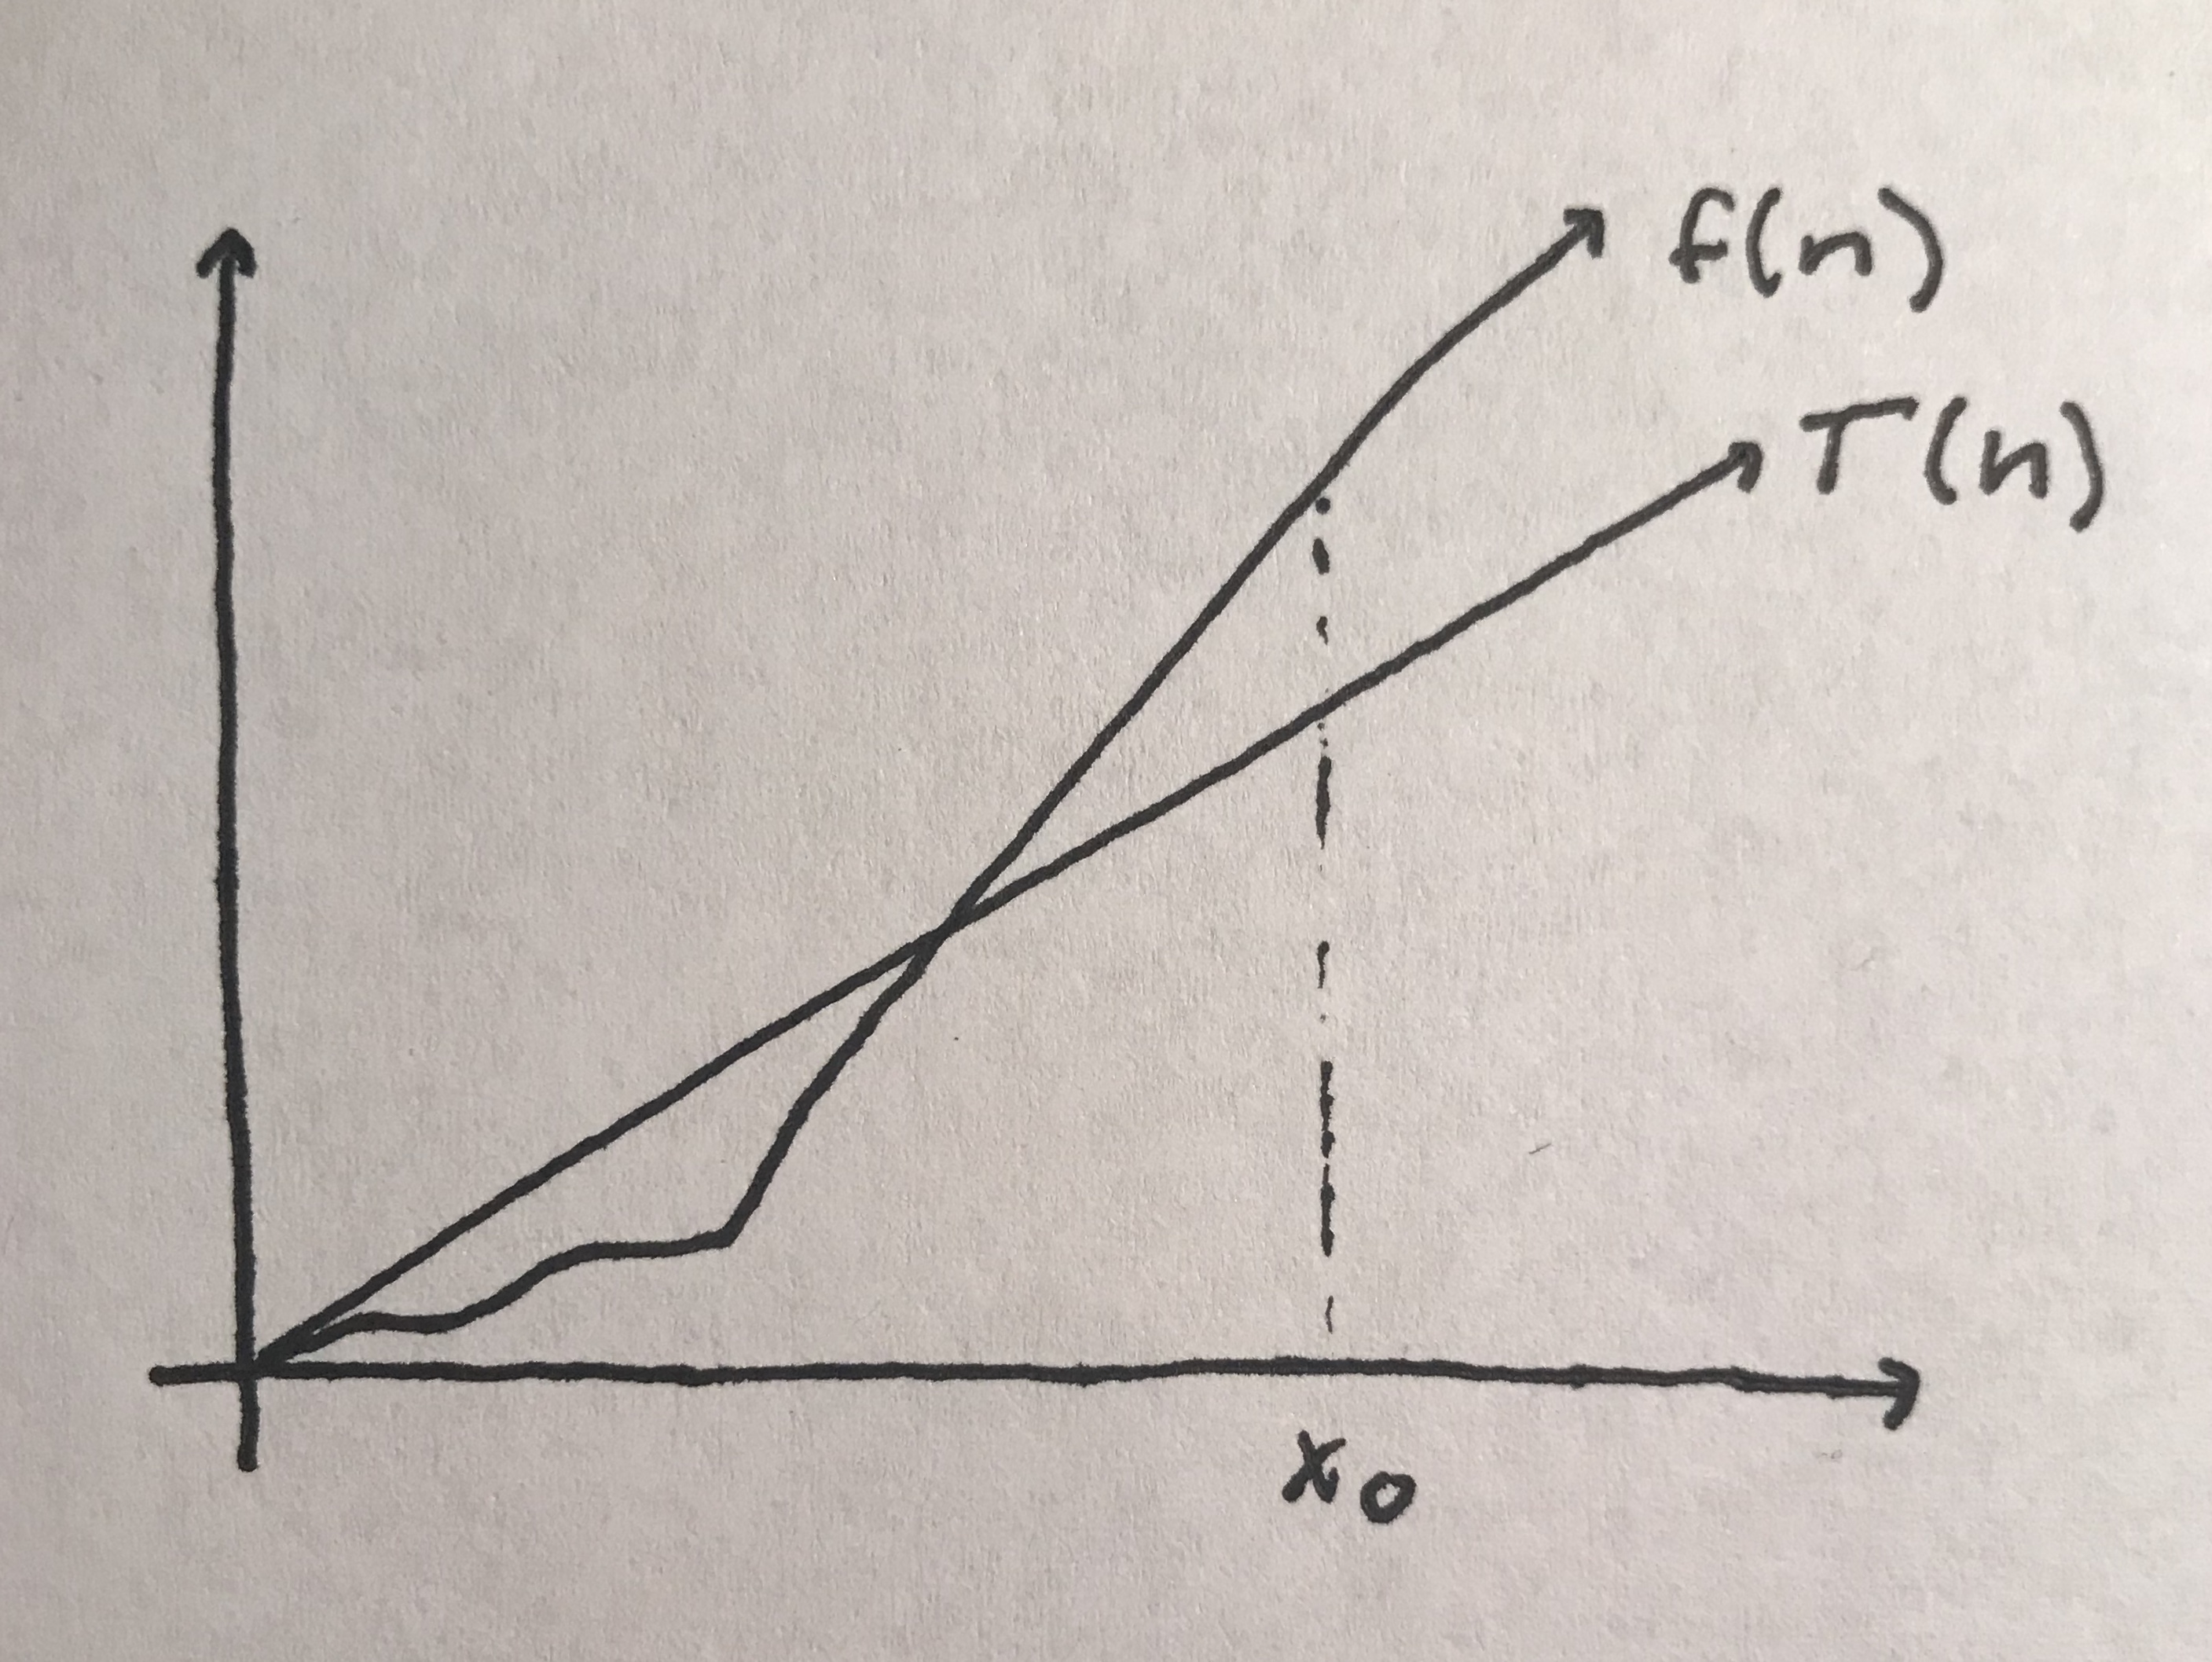 f(n)
T(n)
x₀